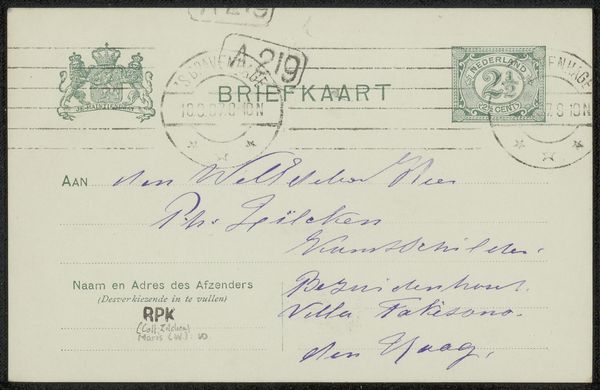 A 219
A 219
'S GRAVENHAGE
BRIEFKAART
NEDERLAND
2½
(2½ CENT)
AAN den WelEdelen Heer
Ph: Zilcken
Kunstschilder.
Bezuidenhout.
Villa
den Haag.
Naam en Adres des Afzenders
(Desverkiezende in te vullen)
RPK
(Coll Zilcken)
Maris (W): 10